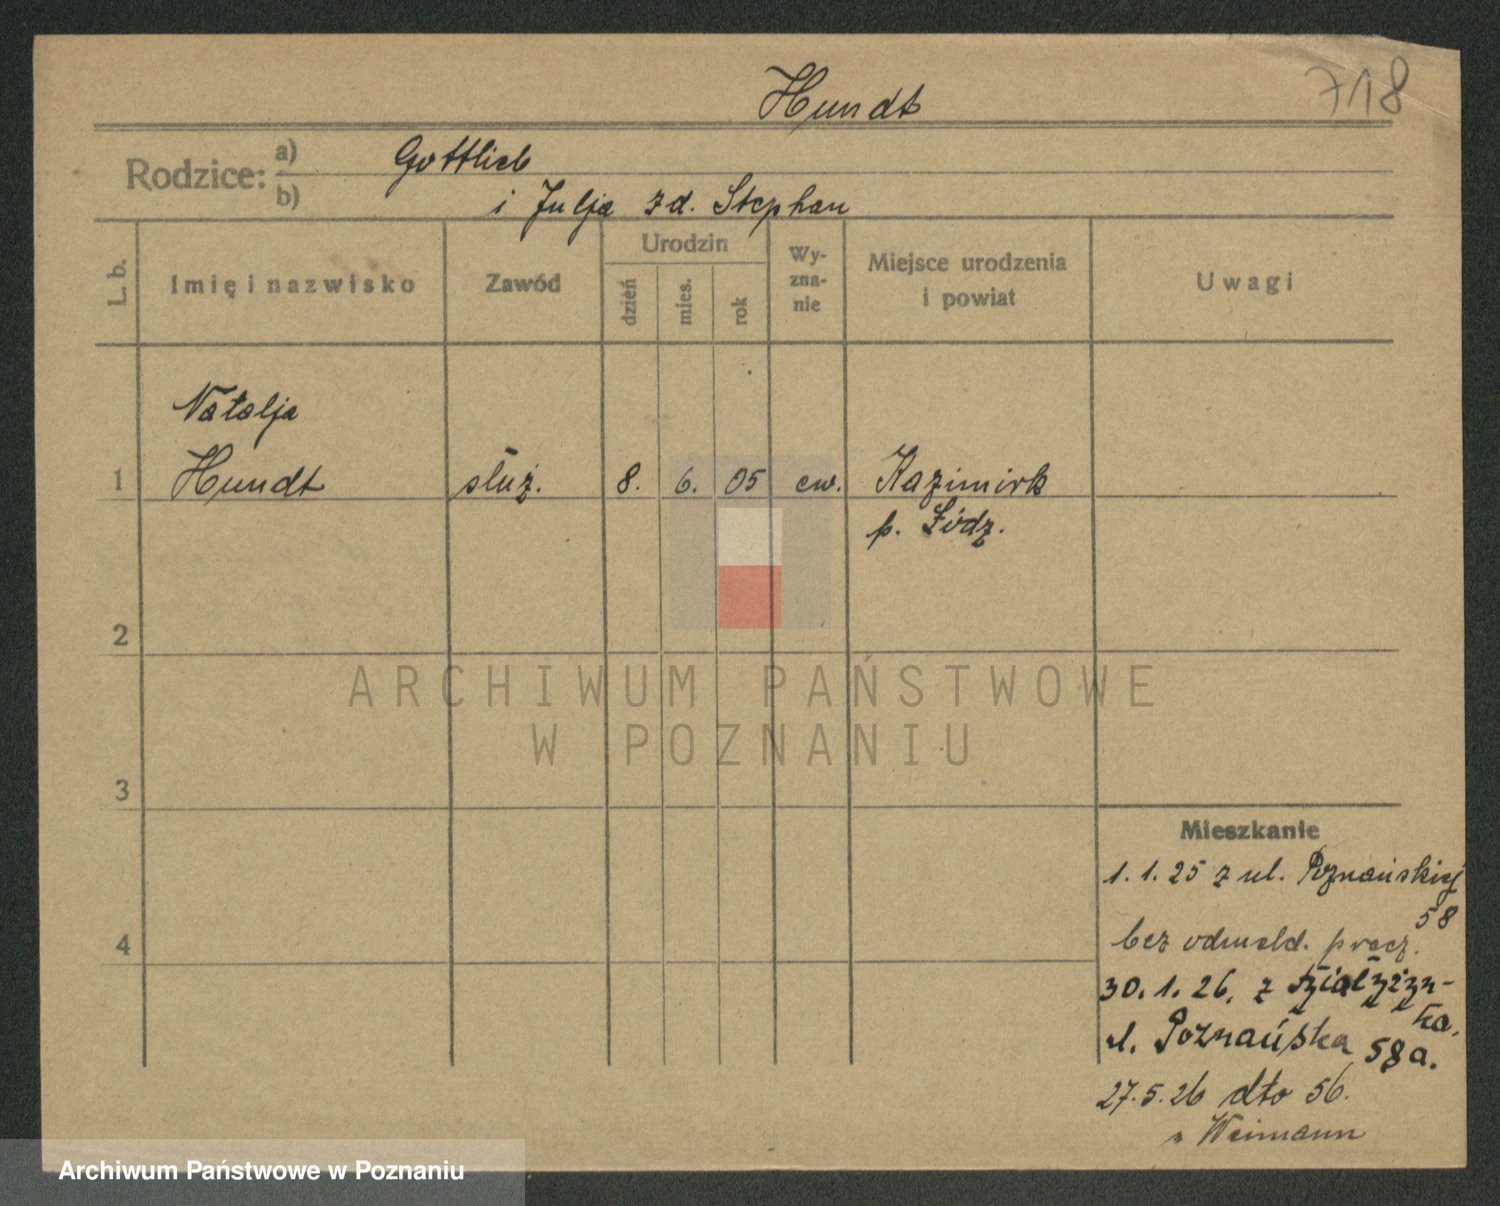 718
Hundt
Rodzice: a) Gottlieb
b) i Julja zd. Stephan
L. b.
Imię i nazwisko
Zawód
Urodzin
dzień
mies.
rok
Wy-
zna-
nie
Miejsce urodzenia
i powiat
Uwagi
Natalja
1 Hundt służ. 8. 6. 05 ew. Kazimirk
p. Łódz.
2
3
4
Mieszkanie
1. 1. 25 z ul. Poznańskiej
58
bez odmeld. przez.
30. 1. 26. z
ka.
ul. Poznańska 58a.
27. 5. 26 dto 56.
u Weimann
ARCHIWUM PAŃSTWOWE
W POZNANIU
Archiwum Państwowe w Poznaniu